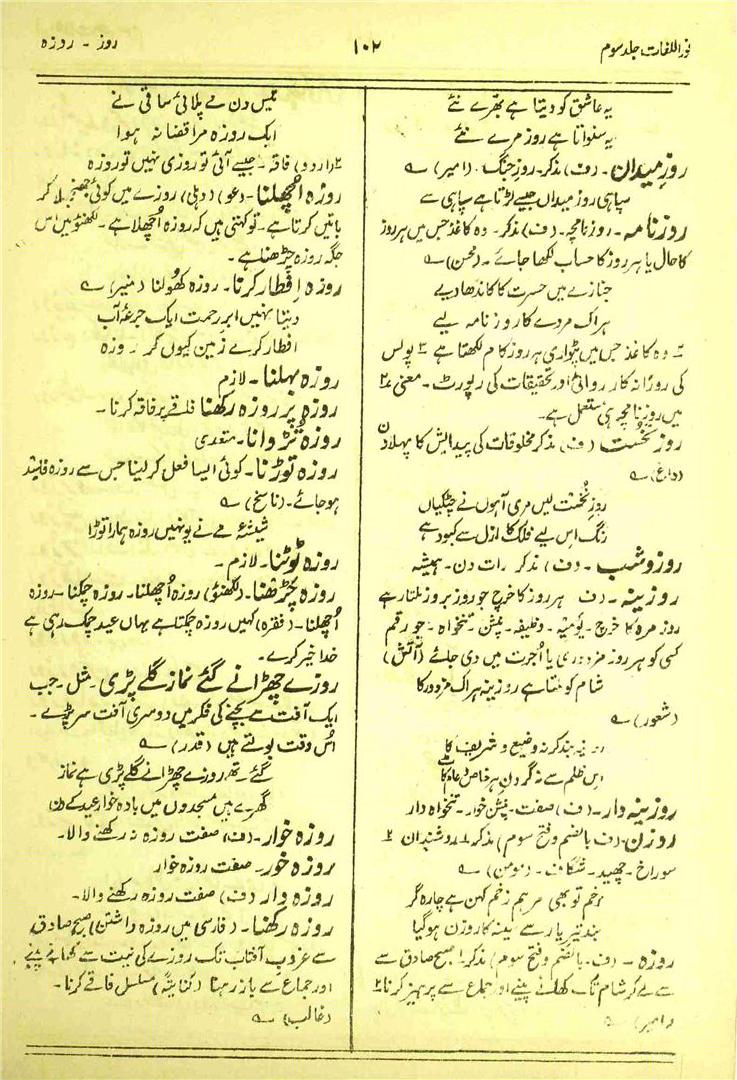 نوراللغات جلد سوم
۱۰۲
روز ۔ روزہ
یہ عاشق کو دیتا ہے بھرّے نئے
یہ سنواتا ہے روز مرے نئے
روزِ میدان ۔ (ف) مذکر۔ روزِ جنگ ۔ (امیر) ؎
سپاہی روزِ میداں جیسے لڑتا ہے سپاہی سے
روزنامہ ۔ روزنامچہ ۔ (ف) مذکر۔ وہ کاغذ جس میں ہر روز
کا حال یا ہر روز کا حساب لکھا جائے ۔ (محسن) ؎
جنازے میں حسرت کا کاندھا دیے
ہر اک مردے کا روزنامہ لیے
وہ کاغذ جس میں پٹواری ہر روز کام لکھتا ہے ۳ پولس
کی روزانہ کارروائی اور تحقیقات کی رپورٹ ۔ معنی ۲
میں روزنامچہ ہی مستعمل ہے۔
روزِ نخست (ف) مذکر مخلوقات کی پیدایش کا پہلا دن
(داغ) ؎
روزِ نخست لیں مری آہوں نے چٹکیاں
رنگ اس لیے فلک کا ازل سے کبود ہے
روز و شب ۔ (ف) مذکر رات دن۔ ہمیشہ
روزینہ ۔ (ف) ہر روز کا خرچ جو روز بروز ملتا رہے
روز مرہ کا خرچ ۔ یومیہ ۔ وظیفہ ۔ پنشن ۔ تنخواہ ۔ جو رقم
کسی کو ہر روز مزدوری یا اُجرت میں دی جائے (آتش)
شام کو ملتا ہے روزینہ ہر اک مزدور کا
(شعور) ؎
روزینہ بند کر نہ وضیع و شریف کا
اس ظلم سے نہ گردنِ ہر خاص و عام کاٹ
روزینہ دار ۔ (ف) صفت ۔ پنشن خوار ۔ تنخواہ دار
روزن ۔ (ف بالضم و فتح سوم) مذکر ۱ روشندان ۲
سوراخ ۔ چھید ۔ شگاف ۔ (مومن) ؎
زخم تو بھی مرہمِ زخمِ کہن ہے چارہ گر
بند تیرِ یار سے سینہ کا روزن ہوگیا
روزہ ۔ (ف۔ بالضم و فتح سوم) مذکر ۱ صبح صادق سے
لے کر شام تک کھانے پینے اور جماع سے پرہیز کرنا ۲
(امیر) ؎
تیس دن مے پلائی ساقی نے
ایک روزہ مرا قضا نہ ہوا
۲ (اردو) فاقہ ۔ جیسے آئی تو روزی نہیں تو روزہ
روزہ اُچھلنا ۔ (عو) (دہلی) روزے میں کوئی جھنجھلا کر
باتیں کرتا ہے ۔ تو کہتی ہیں کہ روزہ اُچھلا ہے ۔ لکھنؤ میں اس
جگہ روزہ چڑھنا ہے ۔
روزہ اِفطار کرنا ۔ روزہ کھولنا (منیر) ؎
دیتا نہیں ابرِ رحمت ایک جرعۂ آب
افطار کرے زمین کیوں کر روزہ
روزہ بہلنا ۔ لازم
روزہ پر روزہ رکھنا فاقے پر فاقہ کرنا ۔
روزہ تُڑوانا ۔ متعدی
روزہ توڑنا ۔ کوئی ایسا فعل کر لینا جس سے روزہ فاسد
ہوجائے ۔ (ناسخ) ؎
شیشۂ مے نے یونہیں روزہ ہمارا توڑا
روزہ ٹوٹنا ۔ لازم ۔
روزہ چڑھنا ۔ (لکھنؤ) روزہ اُچھلنا ۔ روزہ چمکنا ۔ روزہ
اُچھلنا ۔ (فقرہ) کہیں روزہ چمکتا ہے یہاں عید چمک رہی ہے
خدا خیر کرے ۔
روزے چھڑانے گئے نماز گلے پڑی ۔ مثل ۔ جب
ایک آفت سے بچنے کی فکر میں دوسری آفت سر پڑے ۔
اُس وقت بولتے ہیں (قدر) ؎
گئے تھے روزے چھڑانے گلے پڑی ہے نماز
گھرے ہیں مسجدوں میں بادہ خوار عید کے دن
روزہ خوار ۔ (ف) صفت روزہ نہ رکھنے والا ۔
روزہ خور ۔ صفت روزہ خوار
روزہ دار (ف) صفت روزہ رکھنے والا ۔
روزہ رکھنا ۔ (فارسی میں روزہ داشتن) صبح صادق
سے غروبِ آفتاب تک روزے کی نیت سے کھانے پینے
اور جماع سے باز رہنا (کنایتہً) مسلسل فاقے کرنا ۔
(غالب) ؎